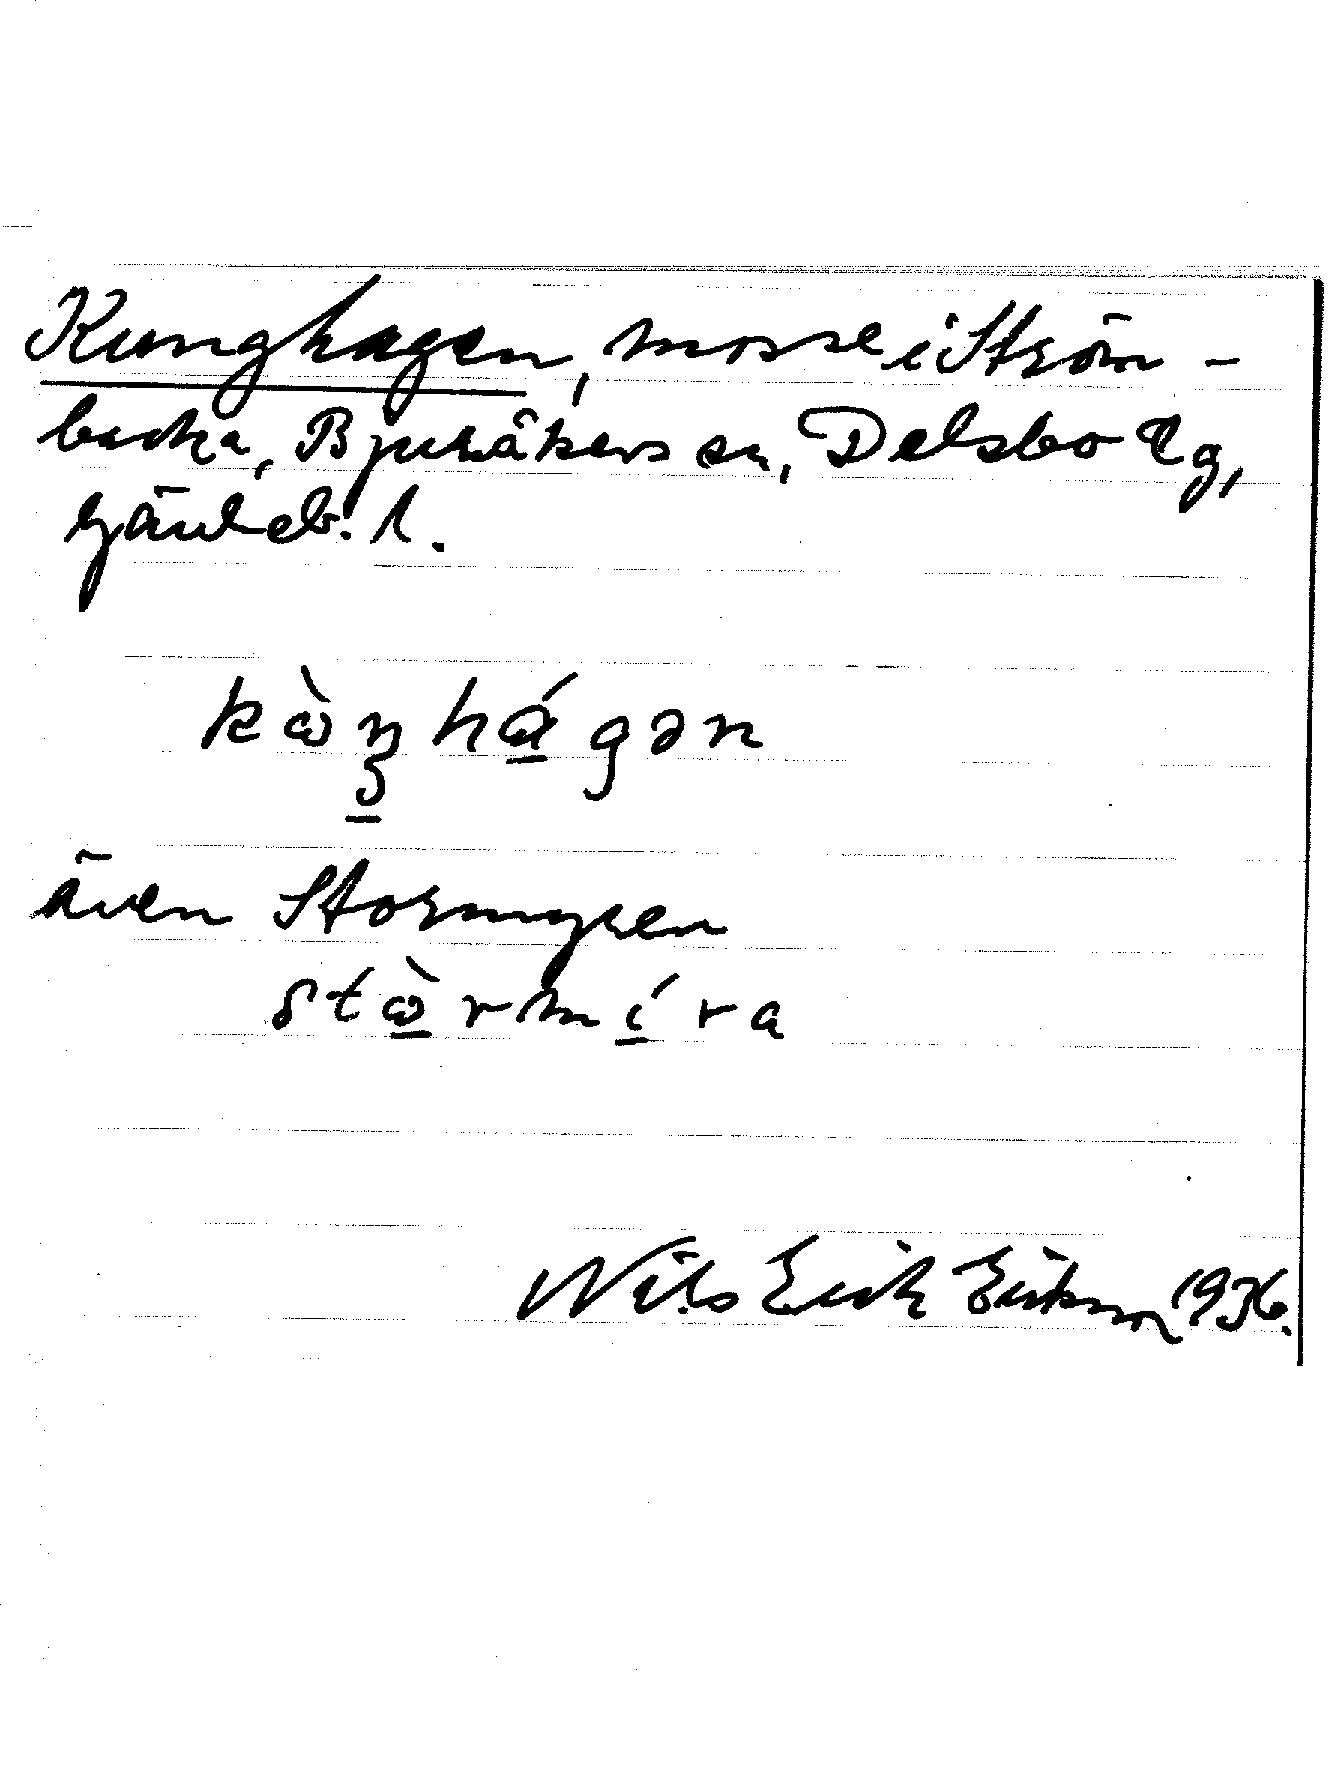 Kunghagen, mosse i Ström-
backa, Bjuråkers sn, Delsbo tg,
Gävleb. l.
kὼŋhágən
även Stormyren
stὼrmíra
Nils Erik Eriksson 1936.